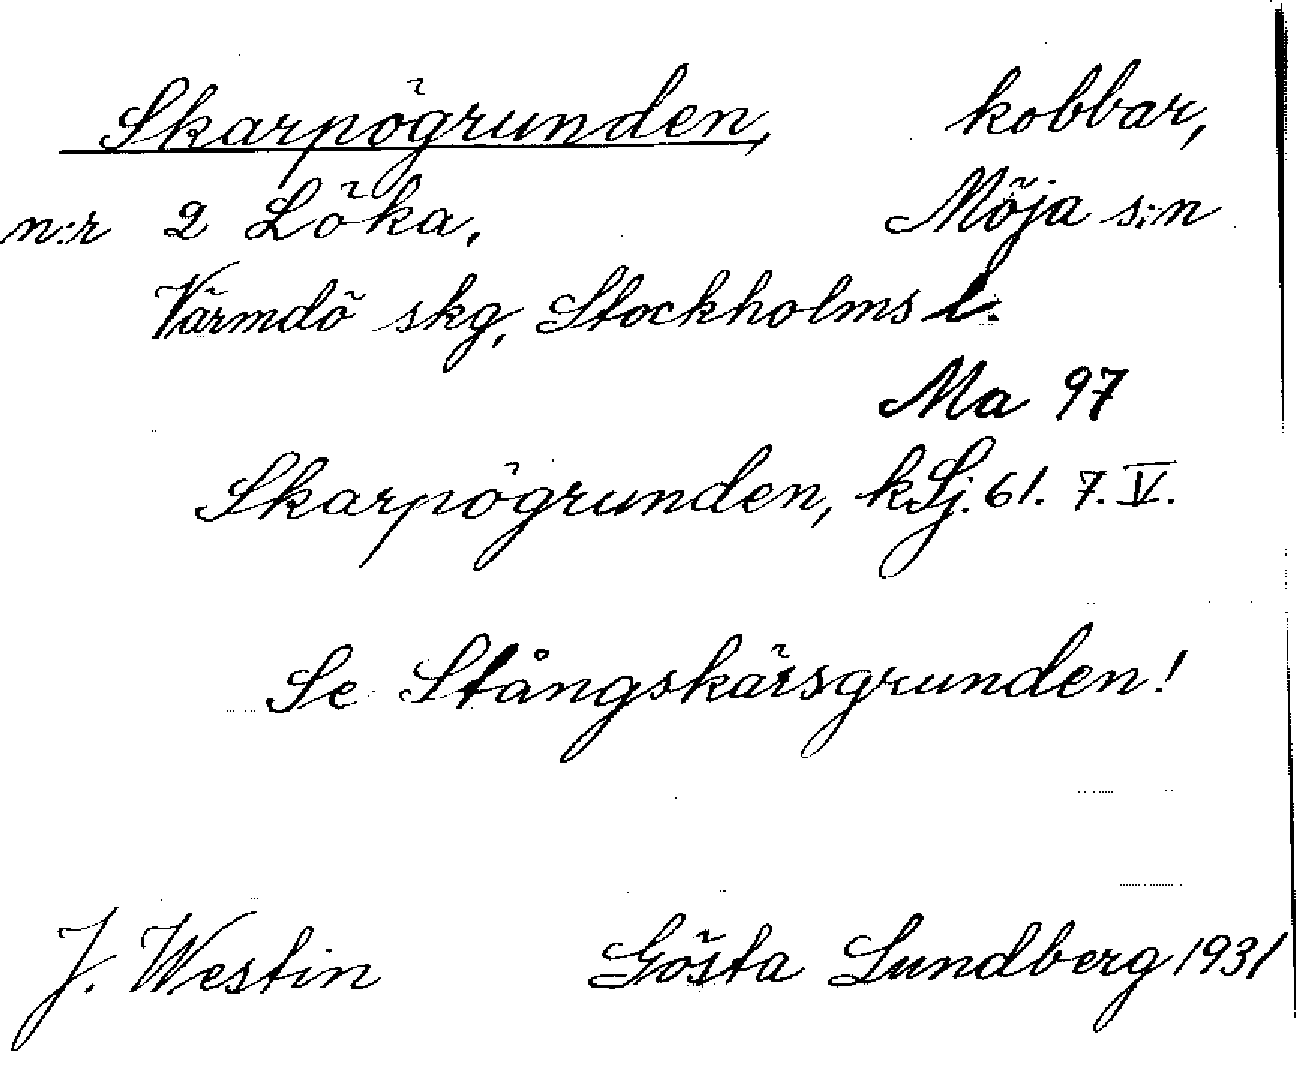 Skarpögrunden, kobbar,
n:r 2 Löka, Möja s:n
Värmdö skg, Stockholms l.
Ma 97
Skarpögrunden, kSj. 61. 7. V.
Se Stångskärsgrunden!
J. Westin Gösta Lundberg 1931